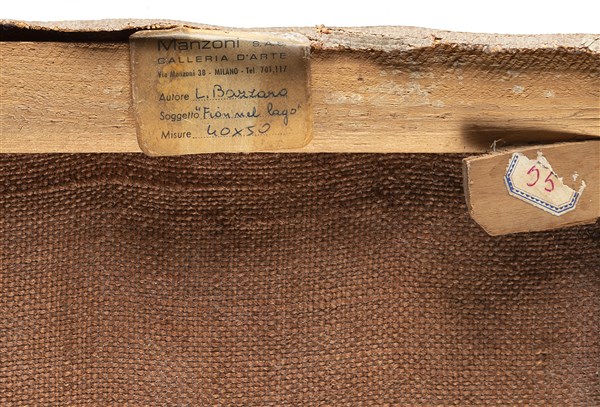 Manzoni S.A.S.
GALLERIA D'ARTE
Via Manzoni 38 - MILANO - Tel. 701.117
Autore L. Bazzaro
Soggetto "Fiori nel lago"
Misure 40x50
55